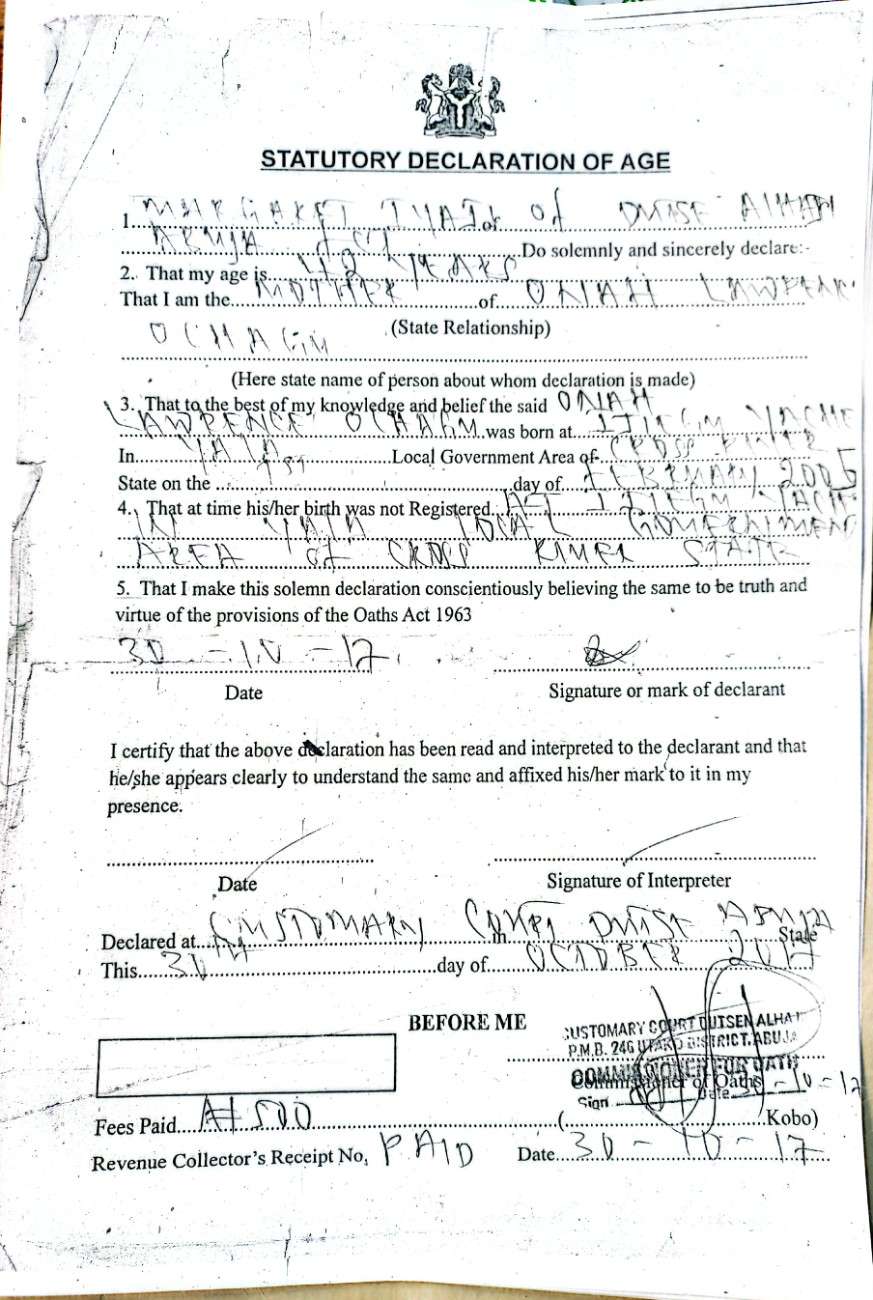 STATUTORY DECLARATION OF AGE
1. MARGARET IYAJI of of DUTSE ALHAJI
ABUJA FCT Do solemnly and sincerely declare:-
2. That my age is 42 YEARS
That I am the MOTHER of ONAH LAWRENC
OCHAGU (State Relationship)
(Here state name of person about whom declaration is made)
3. That to the best of my knowledge and belief the said ONAH
LAWRENCE OCHAGU was born at IJIEGU YACHE
In YALA Local Government Area of CROSS RIVER
State on the 1st day of FEBRUARY 2005
4. That at time his/her birth was not Registered AT IJIEGU YACHE
IN YALA LOCAL GOVERNMENT
AREA of CROSS RIVER STATE
5. That I make this solemn declaration conscientiously believing the same to be truth and
virtue of the provisions of the Oaths Act 1963
30-10-17
Date Signature or mark of declarant
I certify that the above declaration has been read and interpreted to the declarant and that
he/she appears clearly to understand the same and affixed his/her mark to it in my
presence.
Date Signature of Interpreter
Declared at CUSTOMARY COURT DUTSE ABUJA in State
This 30th day of OCTOBER 2017
BEFORE ME
CUSTOMARY COURT DUTSEN ALHAJI
P.M.B. 246 UTAKO DISTRICT. ABUJA
COMMISSIONER FOR OATH
Commissioner of Oaths
Sign Date 30-10-17
Fees Paid ₦500 ( Kobo)
Revenue Collector's Receipt No, PAID Date 30-10-17